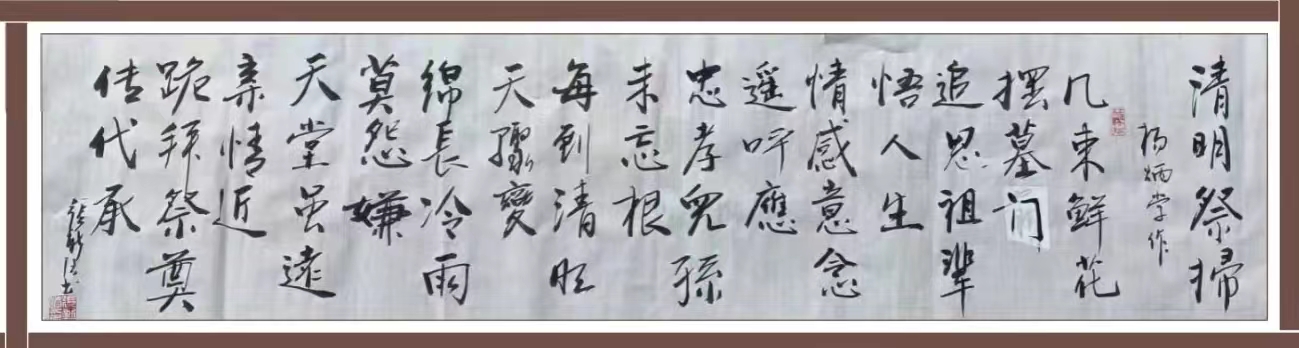 清明祭掃
杨炳学作
几束鲜花
摆墓前
追思祖輩
悟人生
情感意念
遥呼應
忠孝児孫
未忘根
每到清明
天骤變
绵長冷雨
莫怨嫌
天堂虽遠
亲情近
跪拜祭奠
传代承